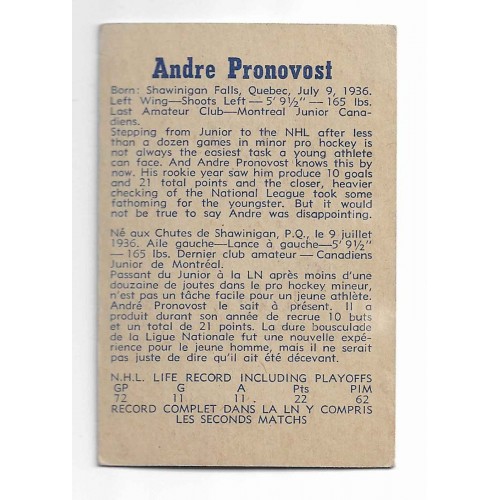 Andre Pronovost
Born: Shawinigan Falls, Quebec, July 9, 1936.
Left Wing—Shoots Left — 5' 9½" — 165 lbs.
Last Amateur Club—Montreal Junior Cana-
diens.
Stepping from Junior to the NHL after less
than a dozen games in minor pro hockey is
not always the easiest task a young athlete
can face. And Andre Pronovost knows this by
now. His rookie year saw him produce 10 goals
and 21 total points and the closer, heavier
checking of the National League took some
fathoming for the youngster. But it would
not be true to say Andre was disappointing.
Né aux Chutes de Shawinigan, P.Q., le 9 juillet
1936. Aile gauche—Lance à gauche—5' 9½"
—165 lbs. Dernier club amateur — Canadiens
Junior de Montréal.
Passant du Junior à la LN après moins d'une
douzaine de joutes dans le pro hockey mineur,
n'est pas un tâche facile pour un jeune athlète.
André Pronovost le sait à présent. Il a
produit durant son année de recrue 10 buts
et un total de 21 points. La dure bousculade
de la Ligue Nationale fut une nouvelle expé-
rience pour le jeune homme, mais il ne serait
pas juste de dire qu'il ait été décevant.
N.H.L. LIFE RECORD INCLUDING PLAYOFFS
GP G A Pts PIM
72 11 11 22 62
RECORD COMPLET DANS LA LN Y COMPRIS
LES SECONDS MATCHS